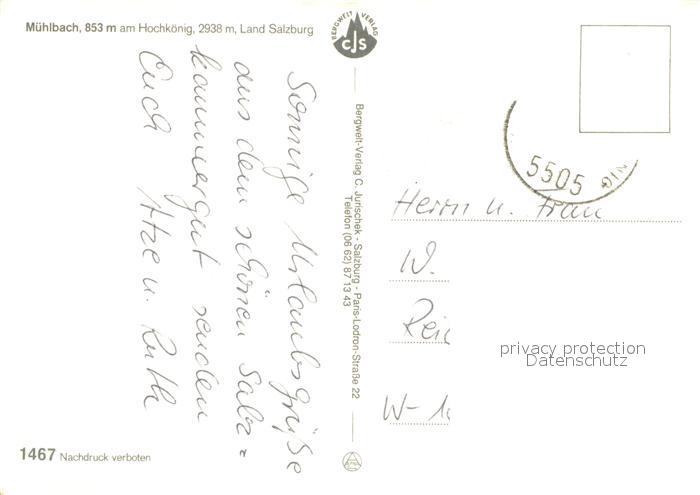 Mühlbach, 853 m am Hochkönig, 2938 m, Land Salzburg
BERGWELT VERLAG
CJS
Sonnige Urlaubsgrüße
aus dem schönen Salz=
kammergut senden
Euch Atze u. Ruth
Bergwelt-Verlag C. Jurischek - Salzburg - Paris-Lodron-Straße 22
Telefon (06 62) 87 13 43
5505
Herrn u. Frau
W.
Rei
W-1
privacy protection
Datenschutz
1467 Nachdruck verboten